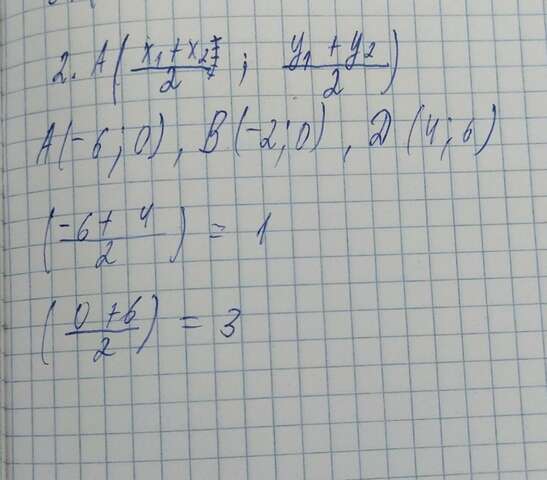 2. A( (x₁+x₂)/2 ; (y₁+y₂)/2 )
A(-6;0), B(-2;0), D(4;6)
( (-6+4)/2 ) = 1
( (0+6)/2 ) = 3